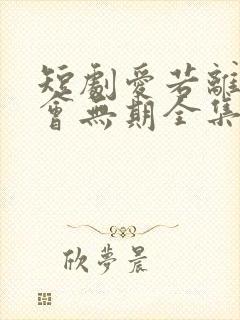 短劇愛若離
會無期全集
欣夢晨